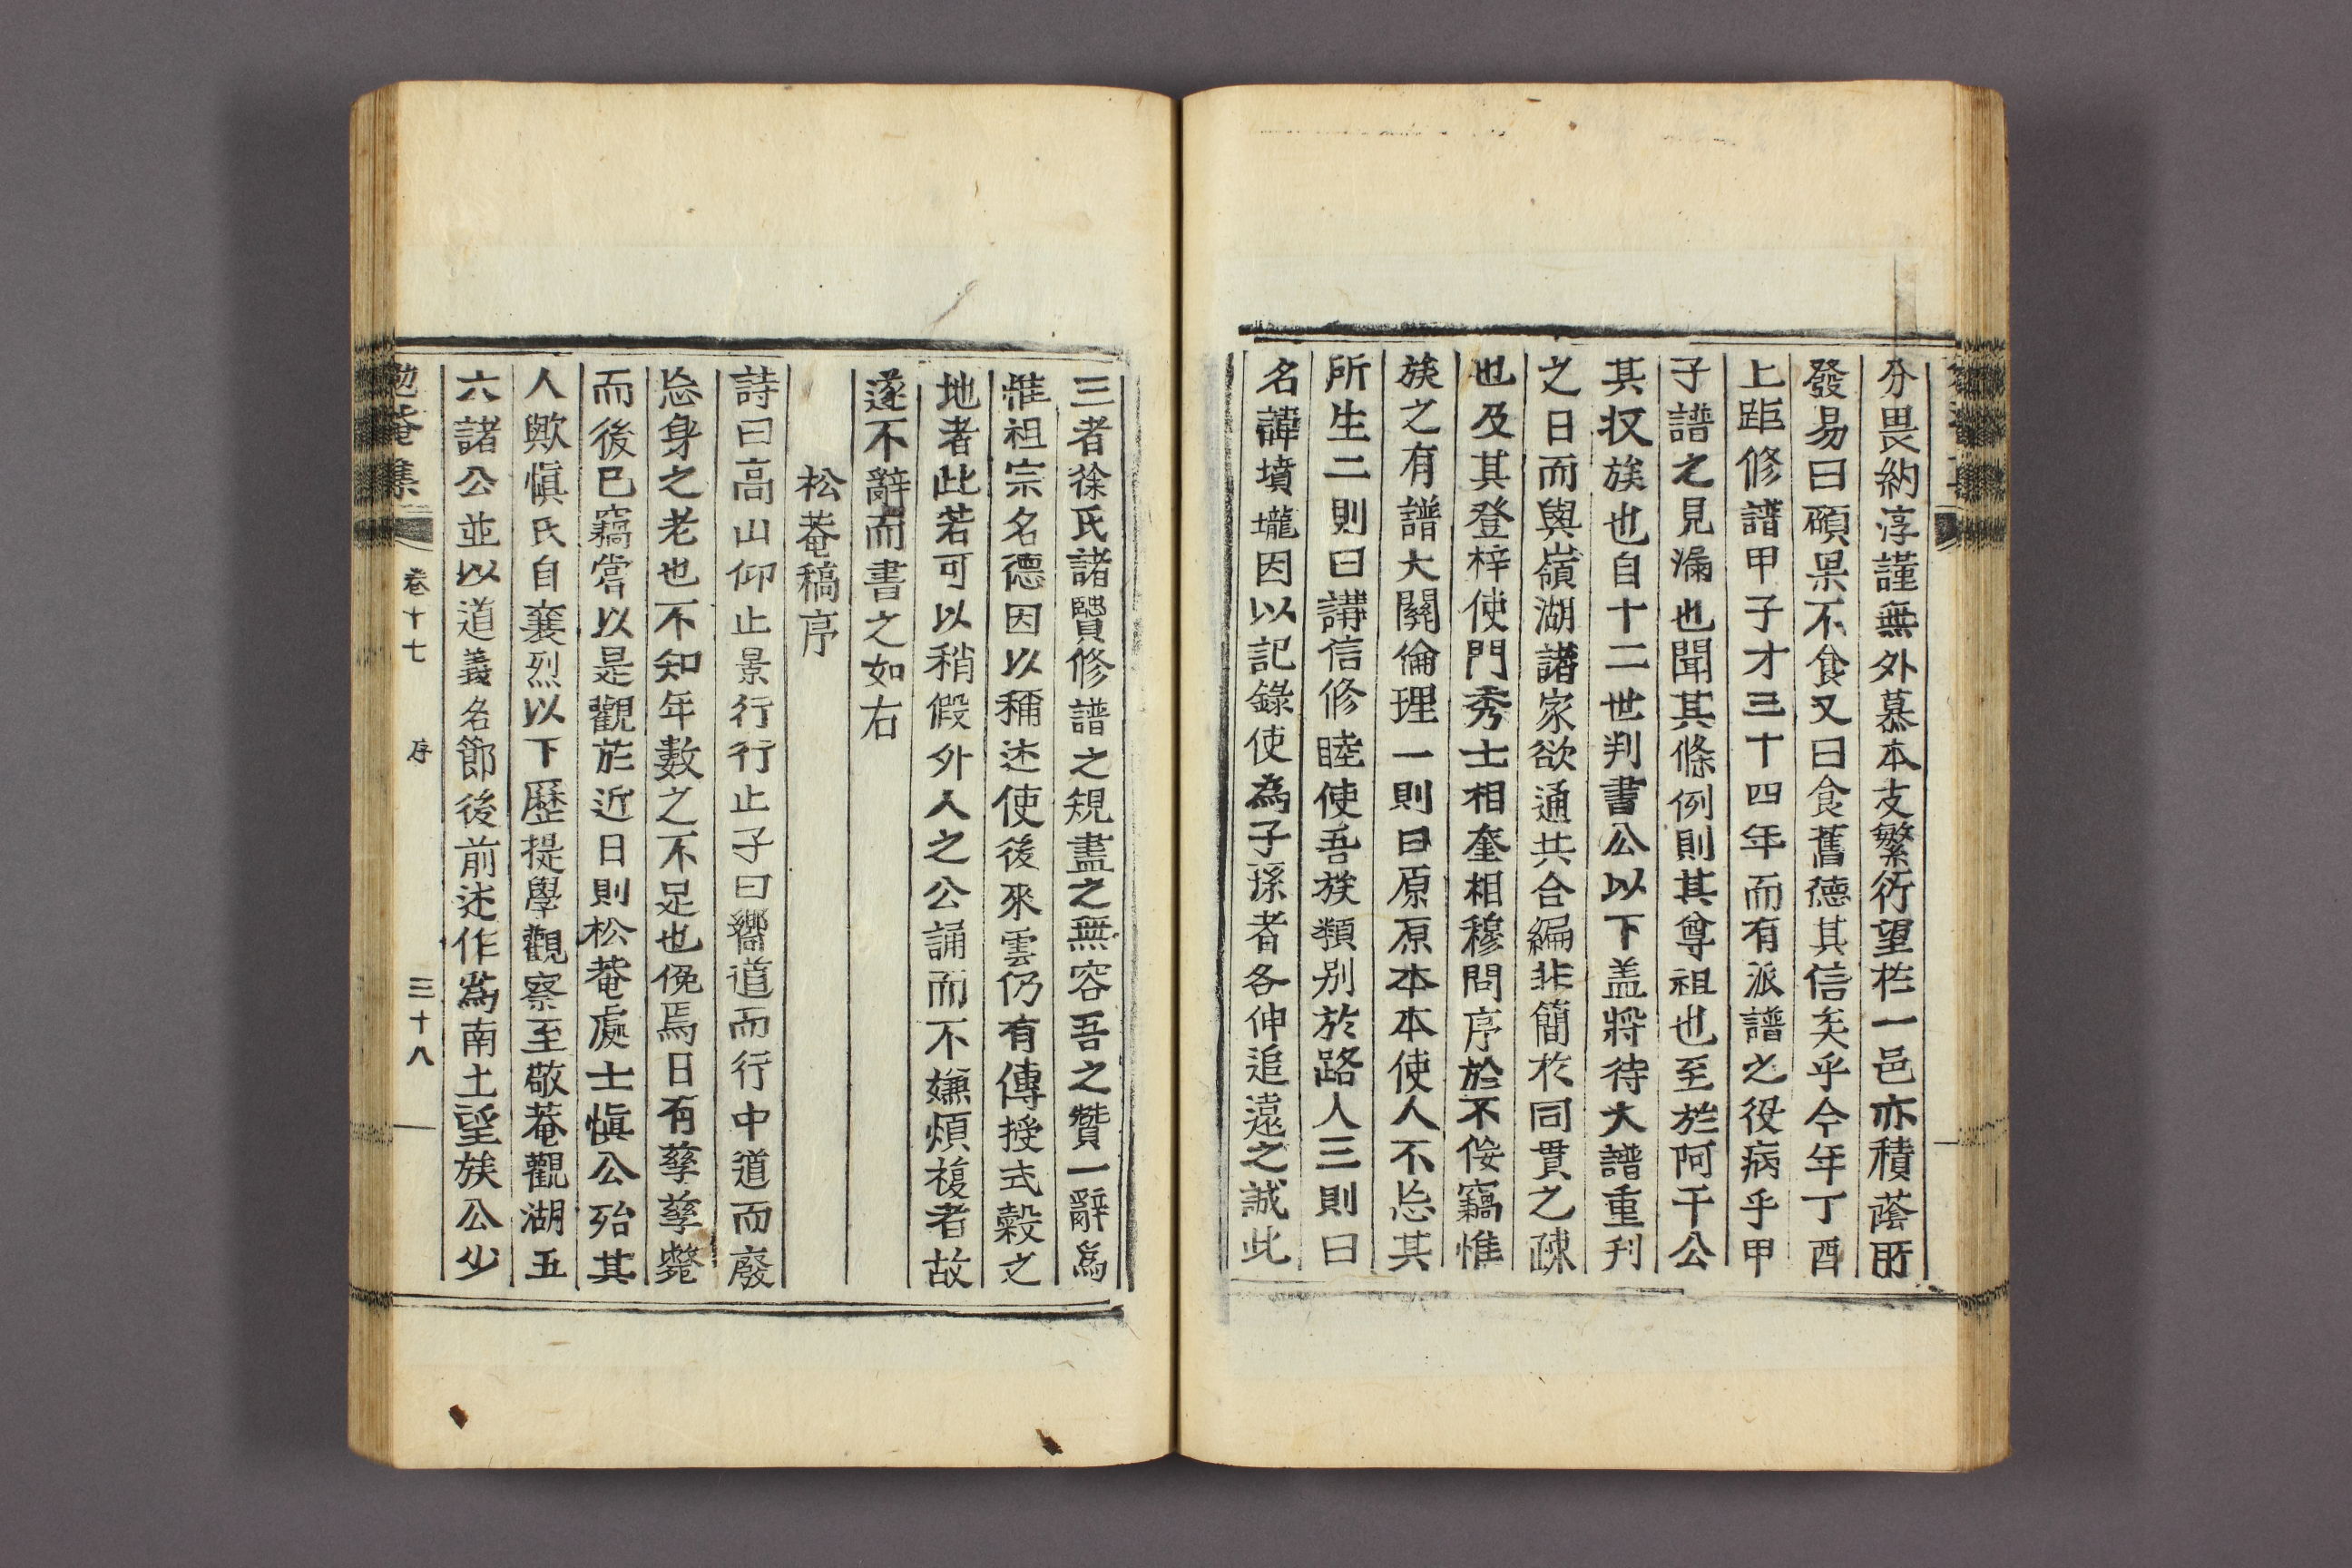 分畏納淳謹無外慕本支繁衍望於一邑亦積蔭所
發易曰碩果不食又曰食舊德其信矣乎今年丁酉
上距修譜甲子才三十四年而有派譜之役病乎甲
子譜之見漏也聞其條例則其尊祖也至於阿干公
其収族也自十二世判書公以下盖將待大譜重刋
之日而與嶺湖諸家欲通共合編非簡於同貫之疎
也及其登梓使門秀士相奎相穆問序於不佞竊惟
族之有譜大關倫理一則曰原原本本使人不忘其
所生二則曰講信修睦使吾族類别於路人三則曰
名諱墳壠因以記錄使為子孫者各伸追遠之誠此
三者徐氏諸賢修譜之規盡之無容吾之贊一辭爲
惟祖宗名德因以稱述使後來雲仍有傳授式穀之
地者此若可以稍假外人之公誦而不嫌煩複者故
遂不辭而書之如右
松菴稿序
詩曰高山仰止景行行止子曰嚮道而行中道而廢
忘身之老也不知年數之不足也俛焉日有孶孶斃
而後已竊嘗以是觀於近日則松菴處士愼公殆其
人歟愼氏自襄烈以下歷提學觀察至敬菴觀湖五
六諸公並以道義名節後前述作爲南土望族公少
勉菴集 卷十七 序 三十八